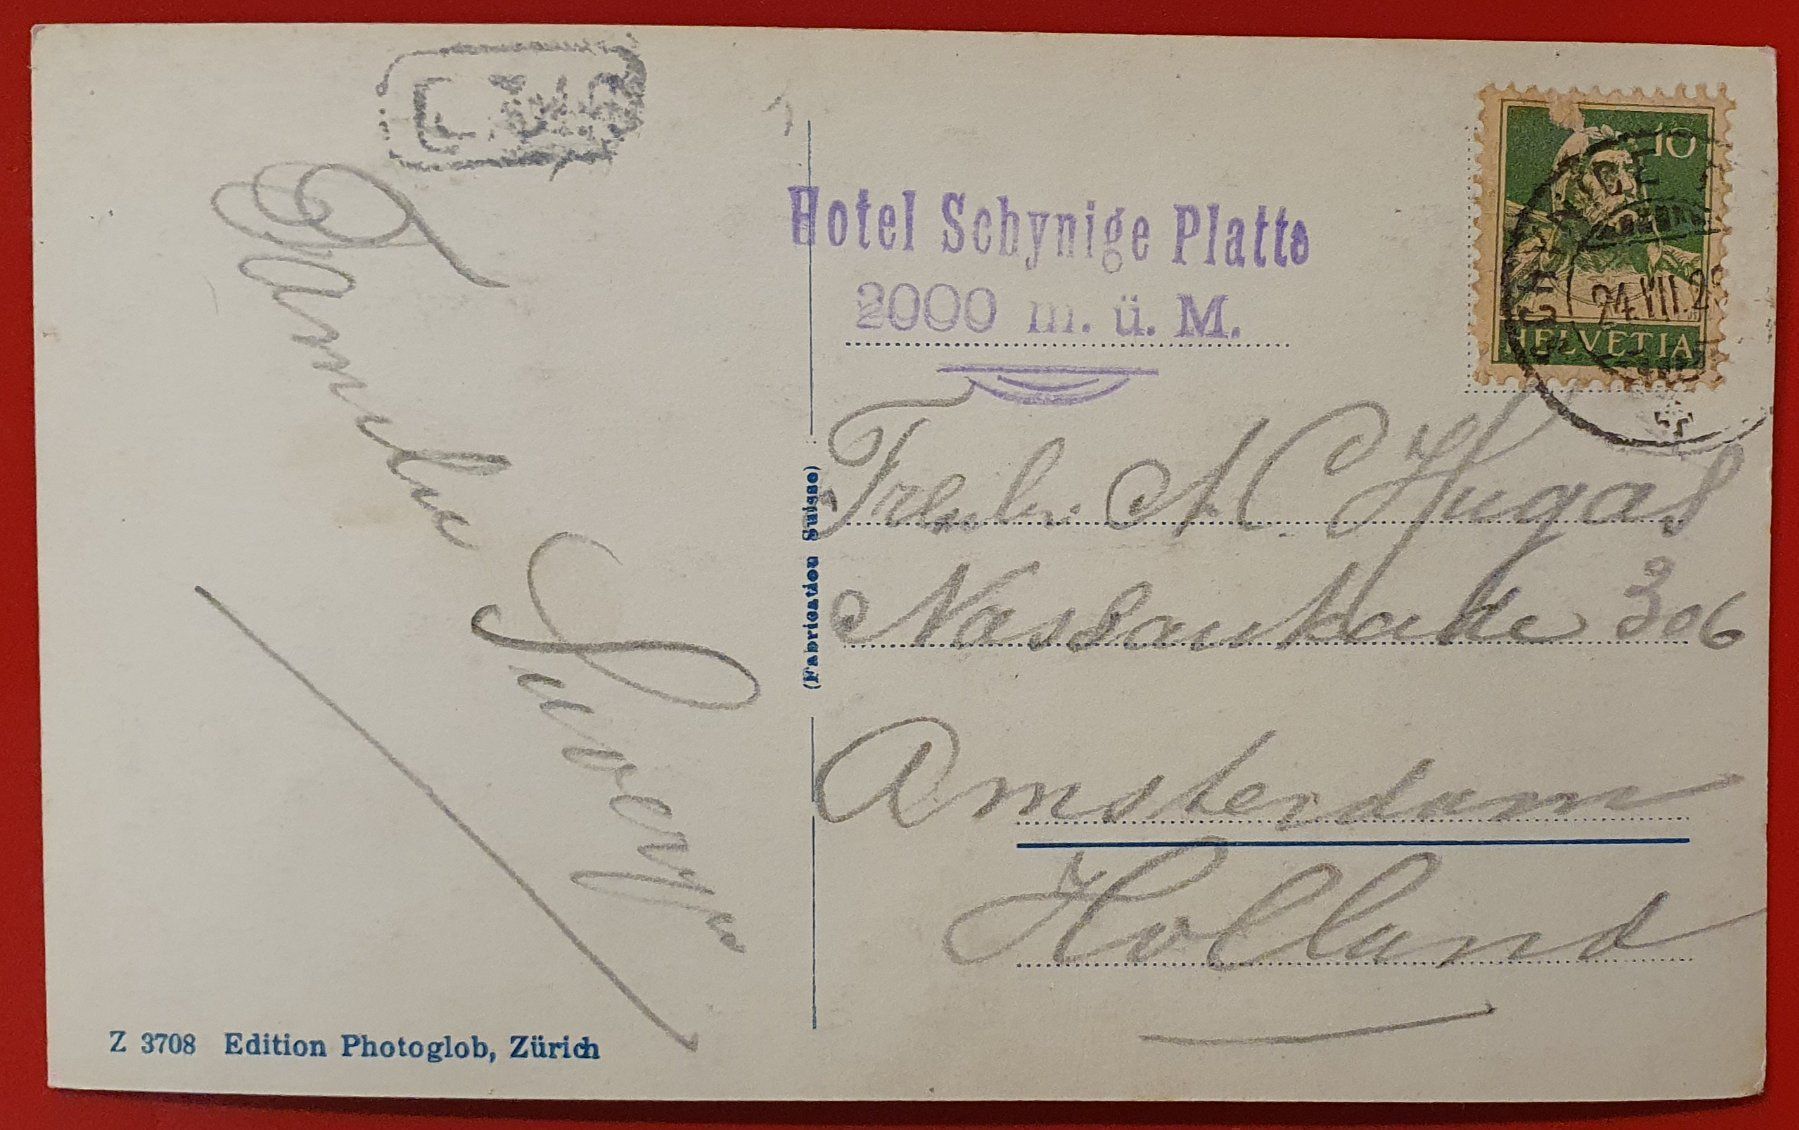 Familie
Hotel Schynige Platte
2000 m. ü. M.
10
24.VII.2
HELVETIA
(Fabrication Suisse)
A C Hugas
Nassaukade 306
Amsterdam
Holland
Z 3708 Edition Photoglob, Zürich